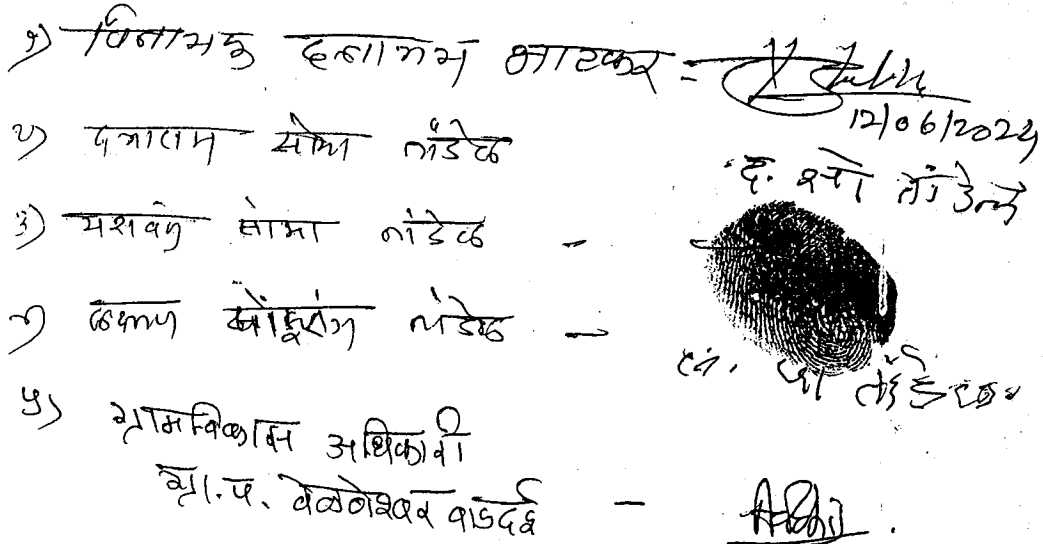 १) विनायक दत्ताराम भाटकर =
12/06/2024
२) दत्ताराम सोमा तांडेल
द. सो तांडेल
३) यशवंत सोमा तांडेल -
४) लक्ष्मण पांडूरंग तांडेल -
५) ग्रामविकास अधिकारी
ग्रा. प. वेळणेश्वर वाडदई -